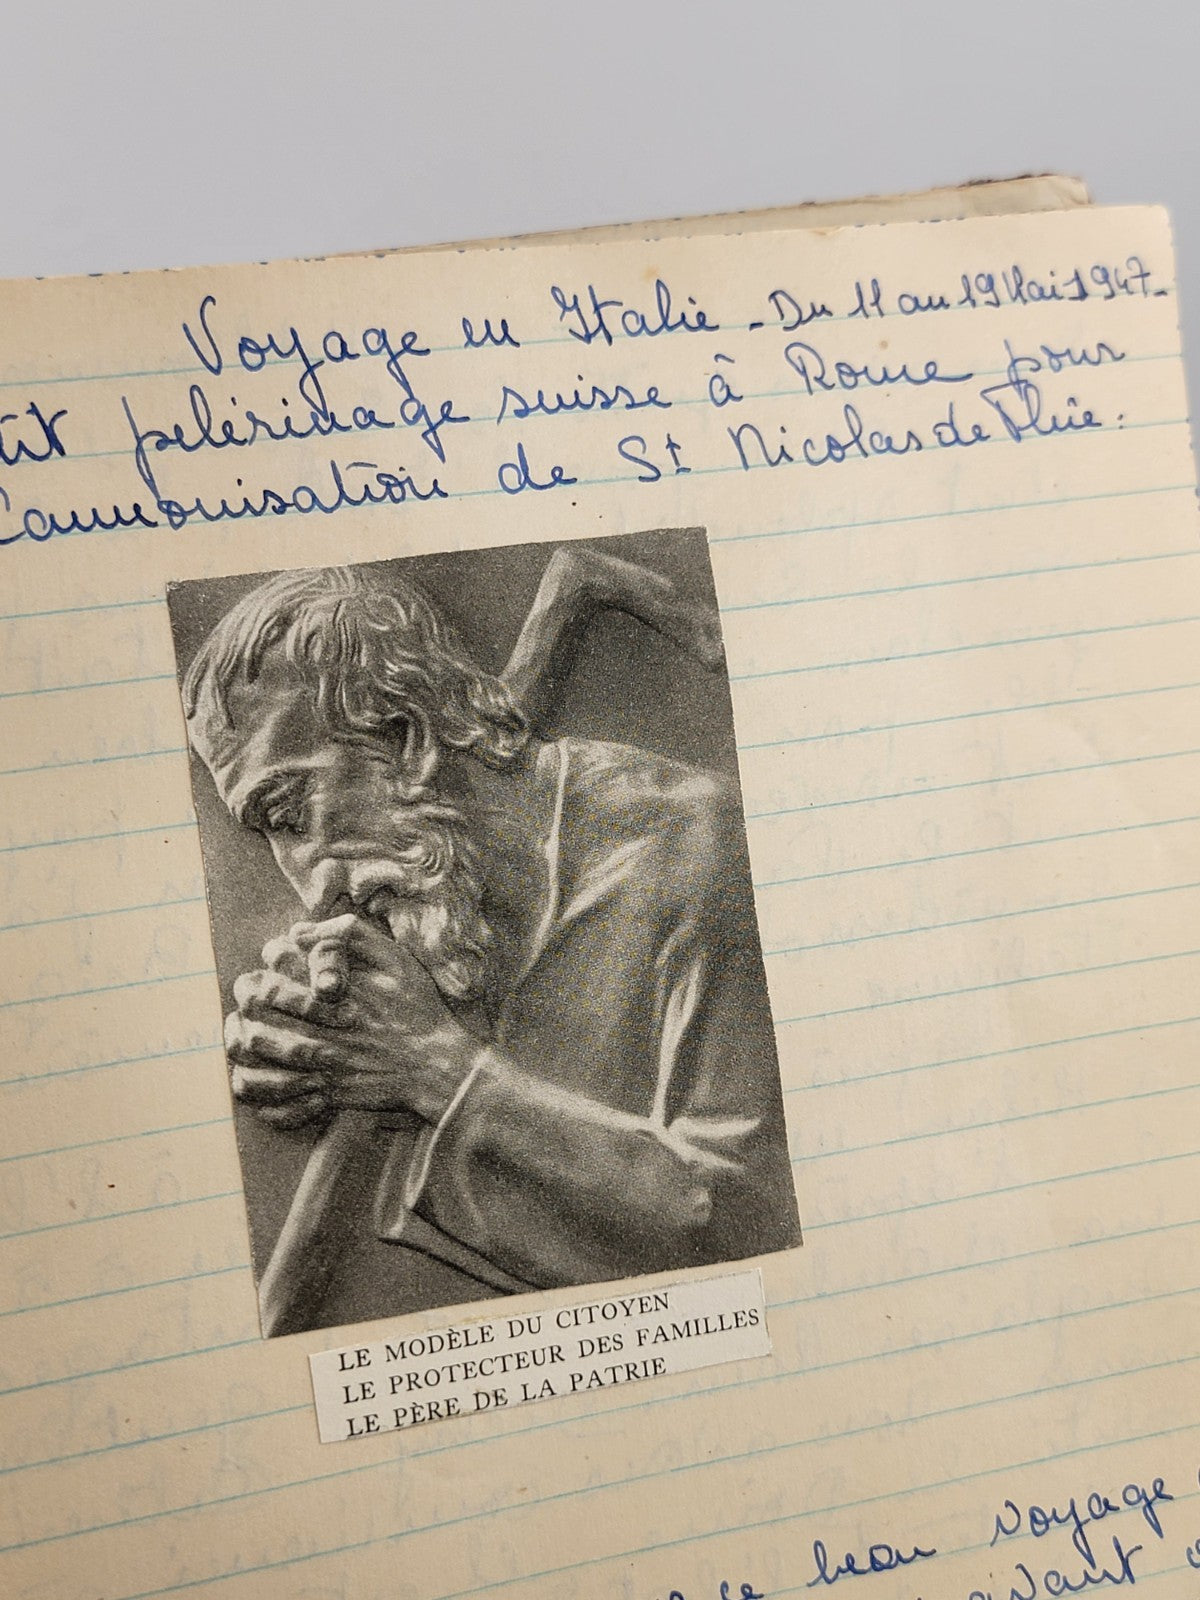 Voyage en Italie - Du 11 au 19 Mai 1947-
tit pelérinage suisse à Rome pour
Cannonisation de St Nicolas de Flüe:
LE MODÈLE DU CITOYEN
LE PROTECTEUR DES FAMILLES
LE PÈRE DE LA PATRIE
ce beau voyage
avant